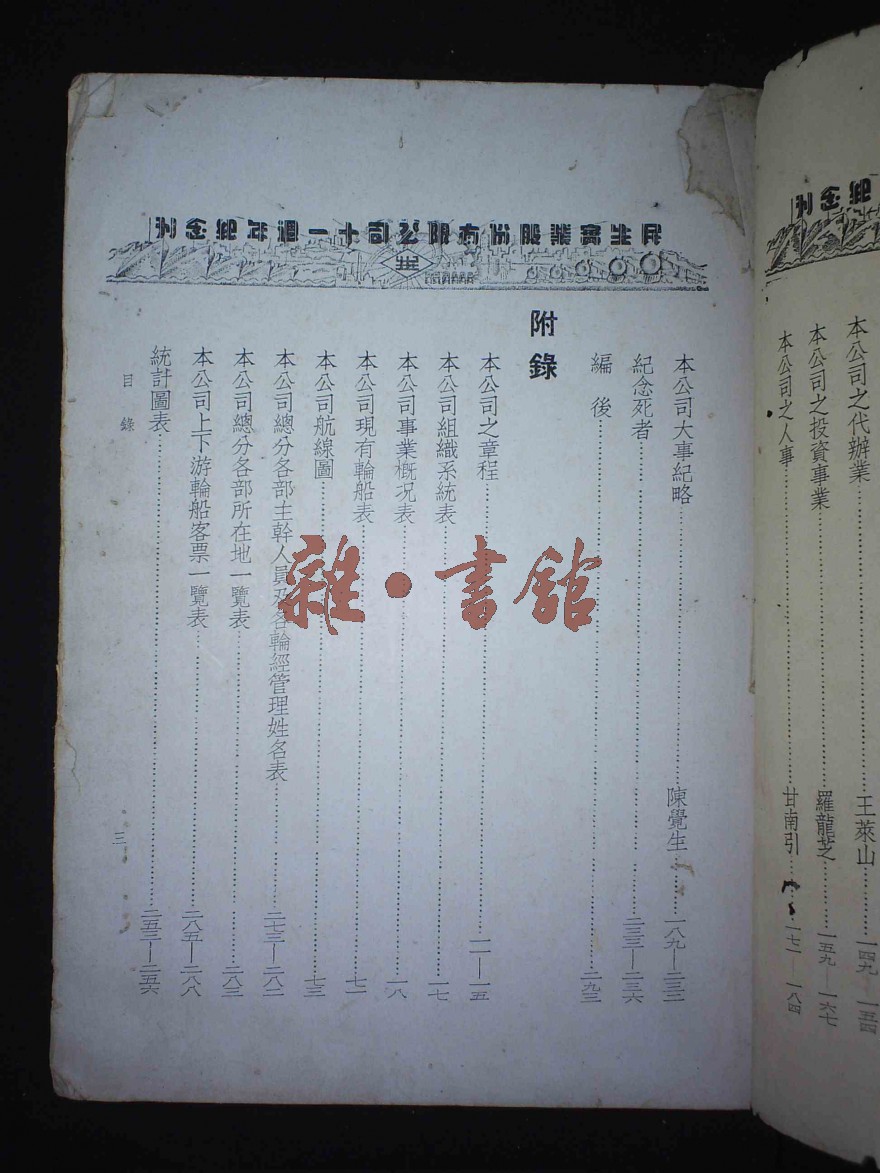 民生實業股份有限公司十一週年紀念刊
本公司之代辦業……王萊山……一四九—一五四
本公司之投資事業……羅龍芝……一五九—一六七
本公司之人事……甘南引……一七一—一八四
本公司大事紀略……陳覺生……一八九—二三二
紀念死者……二三三—二三六
編後……二九三
附錄
本公司之章程……一一—一五
本公司組織系統表……一七
本公司事業概况表……一八
本公司現有輪船表……七一
本公司航線圖……七三
本公司總分各部主幹人員及各輪經管理姓名表……二七三—二八二
本公司總分各部所在地一覽表……二八三
本公司上下游輪船客票一覽表……二八五—二八八
統計圖表……二五三—二五六
目錄
三
雜·書館
念紀
刊